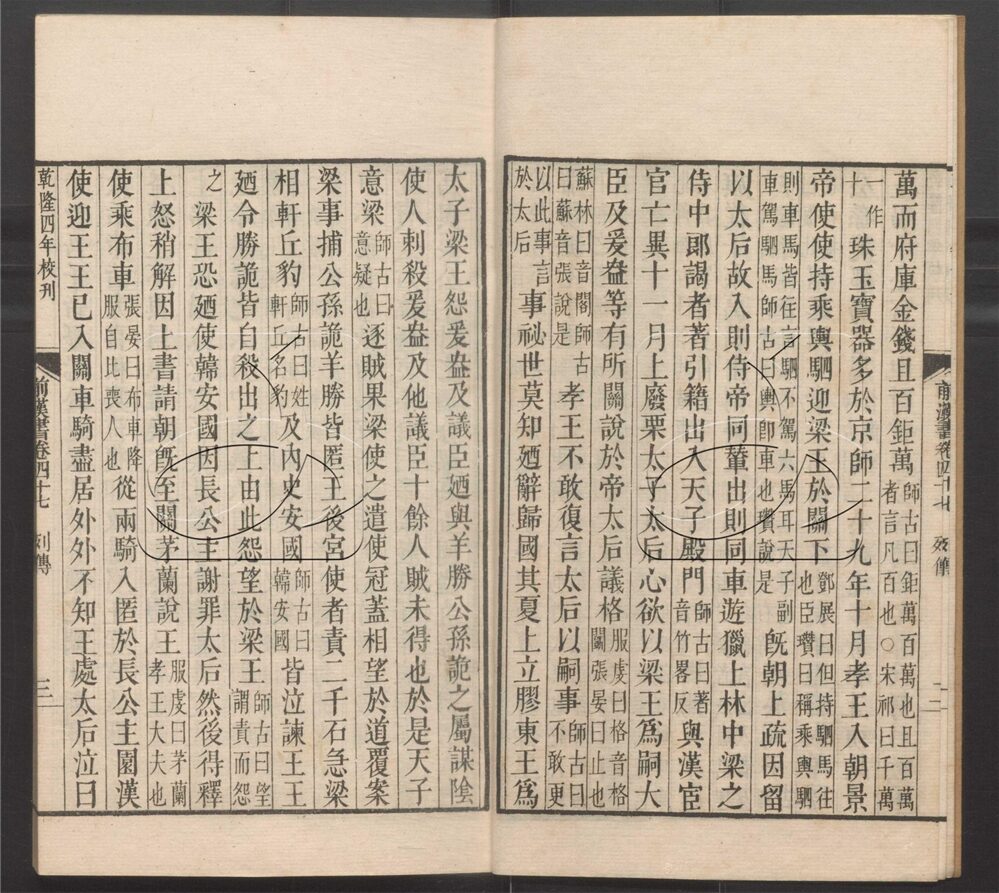 萬而府庫金錢且百鉅萬師古曰鉅萬百萬也且百萬者言凡百也○宋祁曰千萬
一作十珠玉寶器多於京師二十九年十月孝王入朝景
帝使使持乘輿駟迎梁王於關下鄧展曰但持駟馬往也臣瓚曰稱乘輿駟
則車馬皆往言駟不駕六馬耳天子副車駕駟馬師古曰輿卽車也瓚說是旣朝上疏因留
以太后故入則侍帝同輦出則同車遊獵上林中梁之
侍中郞謁者著引籍出入天子殿門師古曰著音竹畧反與漢宦
官亡異十一月上廢栗太子太后心欲以梁王爲嗣大
臣及爰盎等有所關說於帝太后議格服虔曰格音格關張晏曰止也
蘇林曰音閣師古曰蘇音張說是孝王不敢復言太后以嗣事師古曰不敢更
以此事言於太后事祕世莫知廼辭歸國其夏上立膠東王爲
前漢書卷四十七 列傳 二
太子梁王怨爰盎及議臣廼與羊勝公孫詭之屬謀陰
使人刺殺爰盎及他議臣十餘人賊未得也於是天子
意梁師古曰意疑也逐賊果梁使之遣使冠蓋相望於道覆案
梁事捕公孫詭羊勝皆匿王後宮使者責二千石急梁
相軒丘豹師古曰姓軒丘名豹及內史安國師古曰韓安國皆泣諫王王
廼令勝詭皆自殺出之上由此怨望於梁王師古曰望謂責而怨
之梁王恐廼使韓安國因長公主謝罪太后然後得釋
上怒稍解因上書請朝旣至關茅蘭說王服虔曰茅蘭孝王大夫也
使乘布車張晏曰布車降服自比喪人也從兩騎入匿於長公主園漢
使迎王王已入關車騎盡居外外不知王處太后泣曰
乾隆四年校刊 前漢書卷四十七 列傳 三